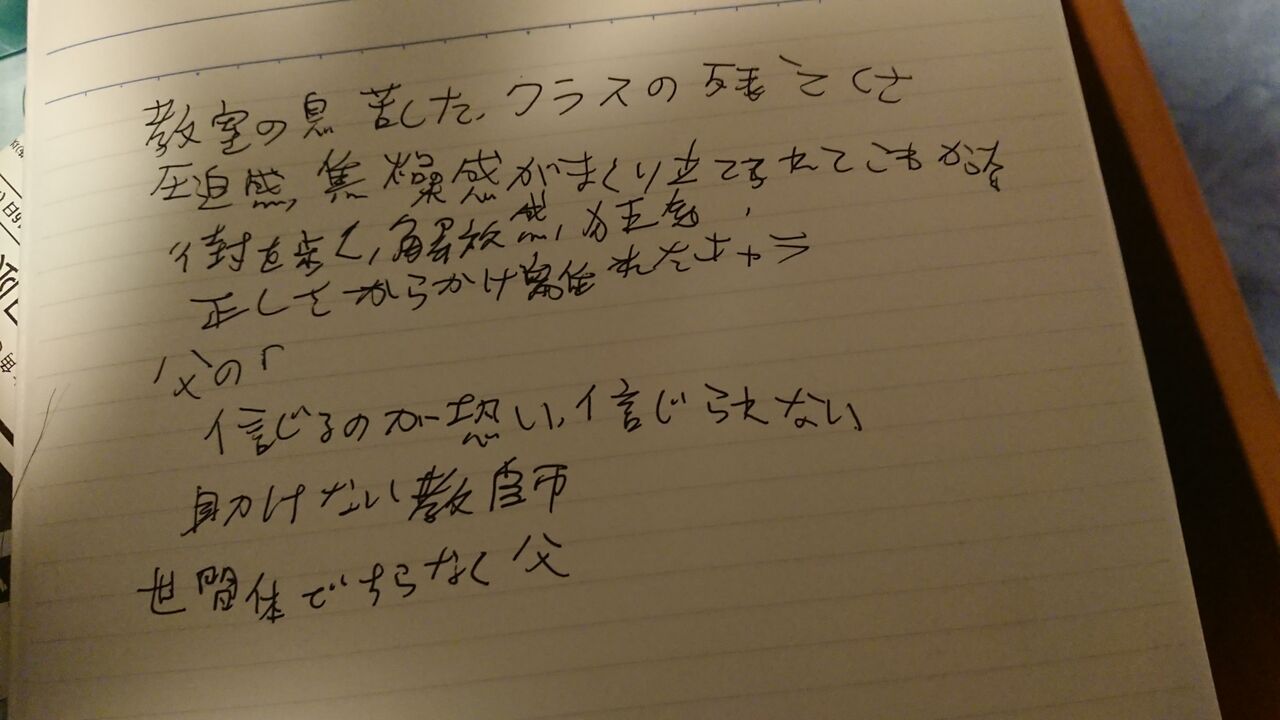 教室の息苦した、クラスの残ごくさ
圧迫感、焦燥感がまくり立てられてこも
街を歩く、解放感、
正してからかけ離れたキャラ
父の「
信じるのが恐い、信じられない
助けない教師
世間体でちらなく父